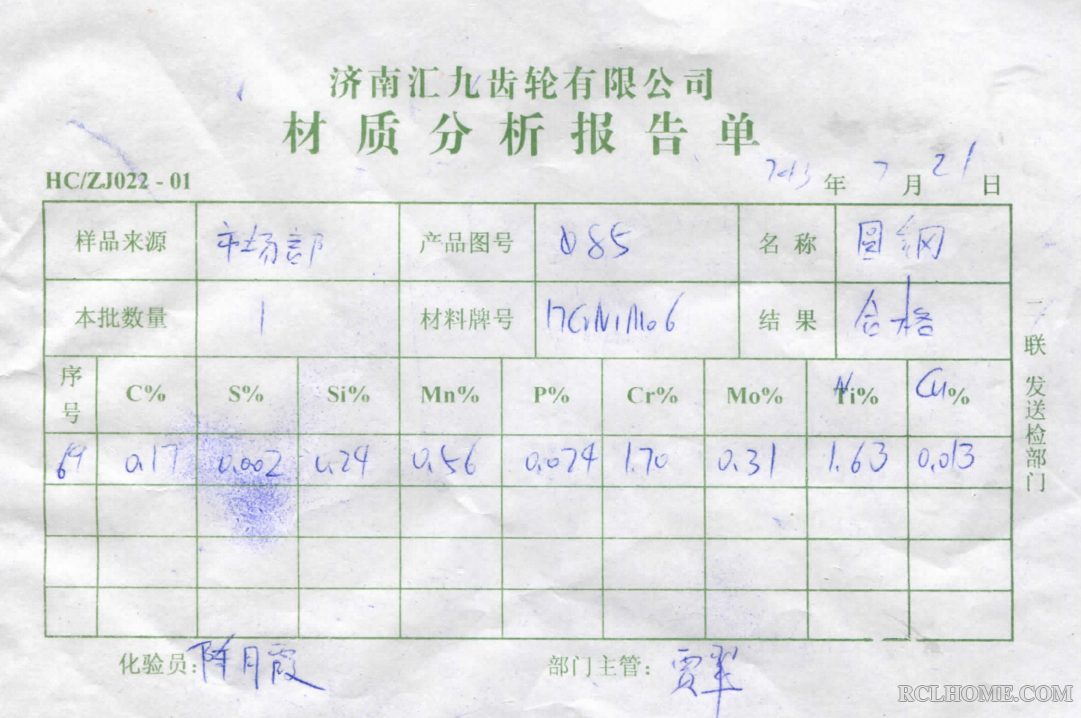 济南汇九齿轮有限公司
材质分析报告单
HC/ZJ022-01 年 7 月 21 日
样品来源 市场部 产品图号 φ85 名称 圆钢
本批数量 1 材料牌号 17CrNiMo6 结果 合格
序号 C% S% Si% Mn% P% Cr% Mo% Ni% Cu%
69 0.17 0.002 0.24 0.56 0.024 1.70 0.31 1.63 0.013
化验员: 陈月霞 部门主管: 贾翠
二联 发送检部门
RCLHOME.COM